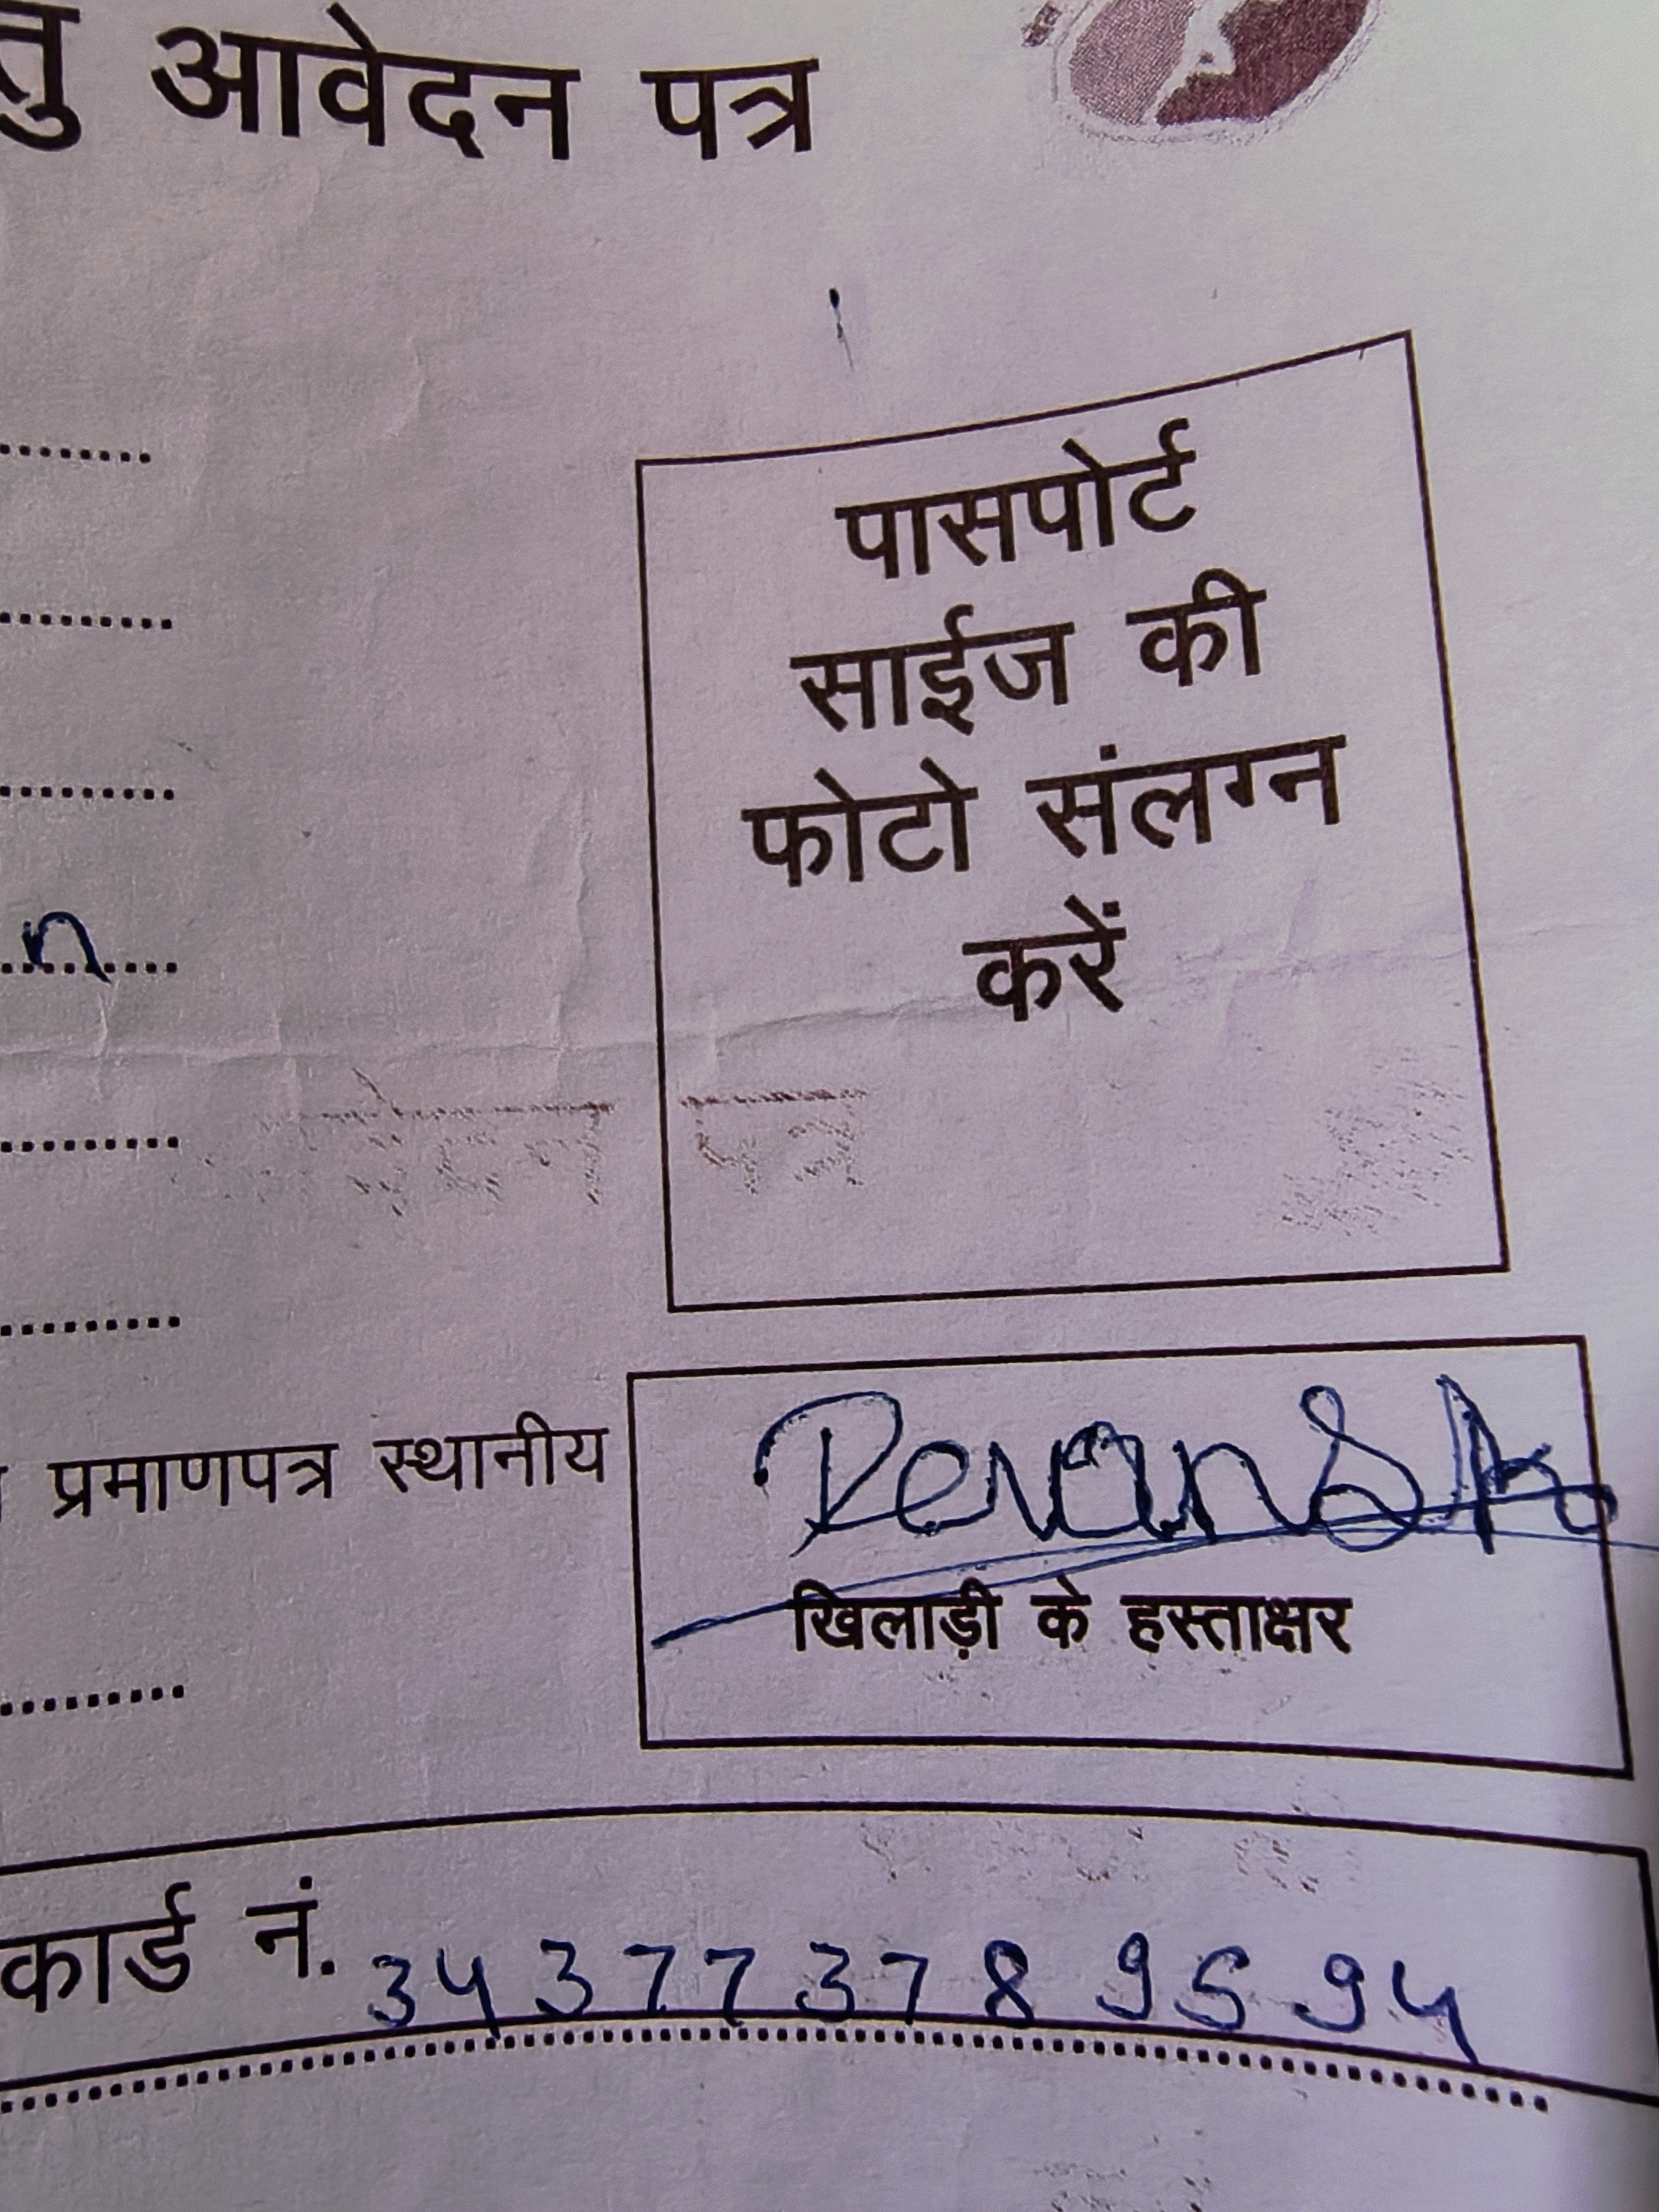 तु आवेदन पत्र
पासपोर्ट
साईज की
फोटो संलग्न
करें
n
प्रमाणपत्र स्थानीय
Devansh
खिलाड़ी के हस्ताक्षर
कार्ड नं. 34 3 7 7 3 7 8 9 5 9 4